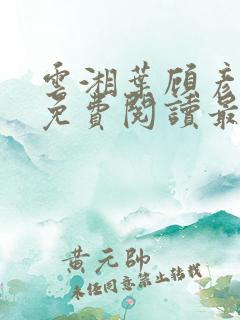 雲湘葉顧彥
免費閱讀最
黃元帥
未經同意禁止轉載